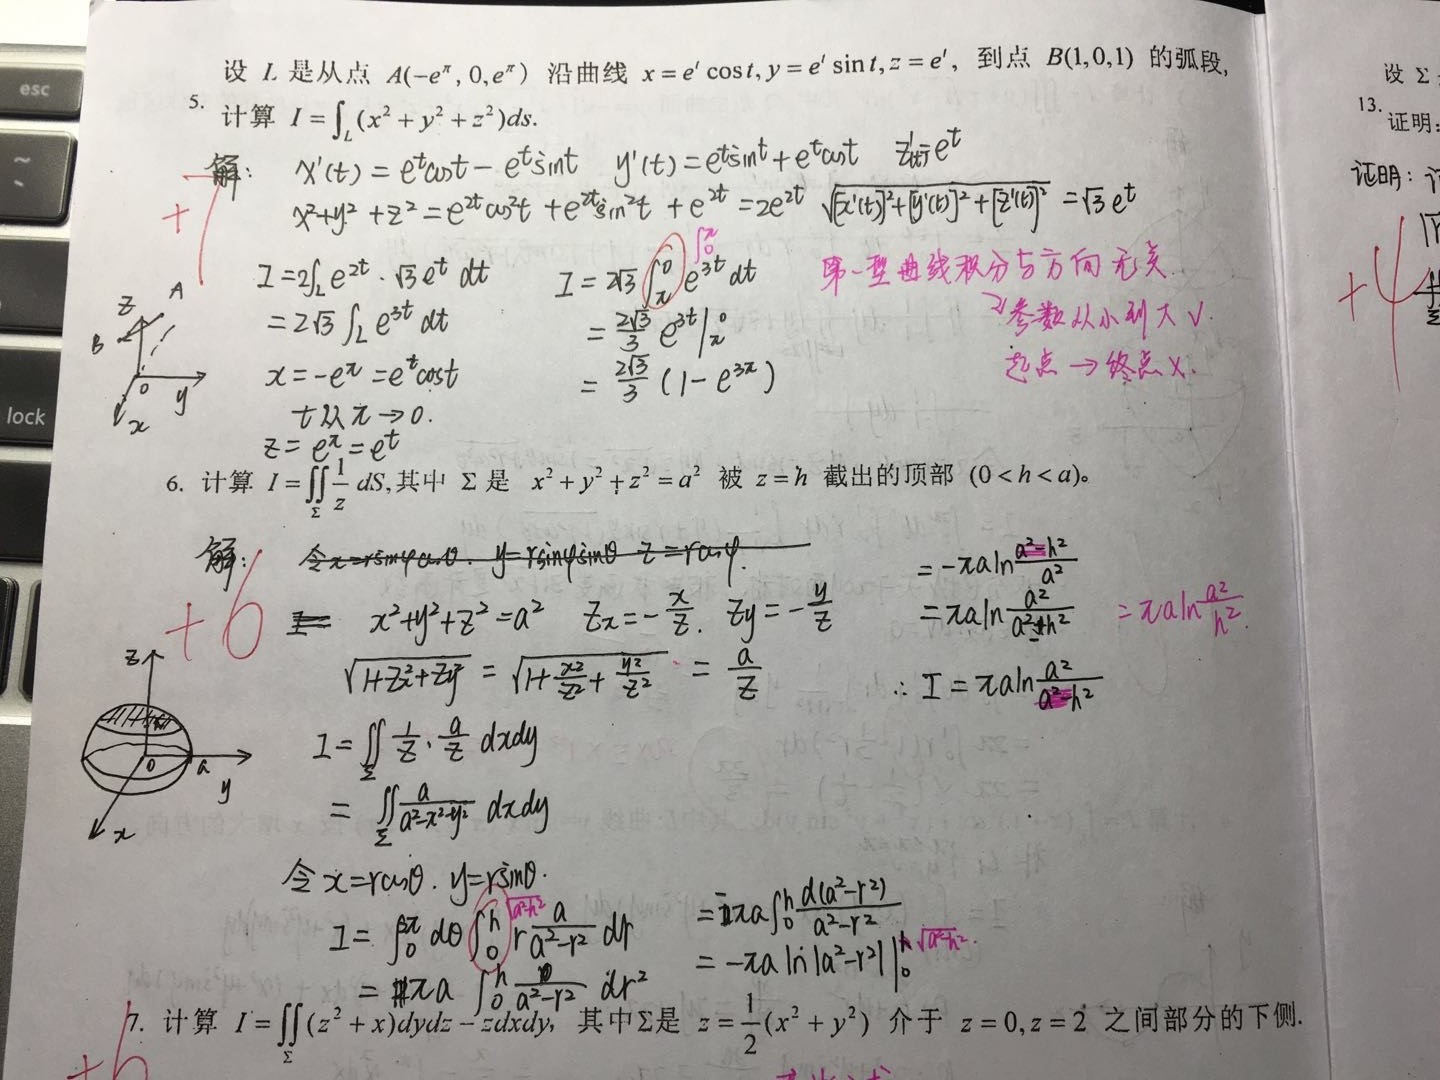 esc
~
`
lock
设 L 是从点 A(-e^π, 0, e^π) 沿曲线 x = e^t cos t, y = e^t sin t, z = e^t, 到点 B(1,0,1) 的弧段,
5. 计算 I = ∫_L (x² + y² + z²)ds.
解: x'(t) = e^t cost - e^t sint y'(t) = e^t sint + e^t cost z'(t) = e^t
+7
x²+y²+z² = e^{2t}cos²t + e^{2t}sin²t + e^{2t} = 2e^{2t} √([x'(t)]²+[y'(t)]²+[z'(t)]²) = √3 e^t
I = 2∫_L e^{2t} · √3 e^t dt
= 2√3 ∫_L e^{3t} dt
x = -e^π = e^t cost
t 从 π → 0.
z = e^π = e^t
I = 2√3 ∫_π^0 e^{3t} dt
∫_0^π
= 2√3/3 e^{3t} |_π^0
= 2√3/3 (1 - e^{3π})
第一型曲线积分与方向无关
参数从小到大 √.
起点 → 终点 ×.
z A B 0 y x
6. 计算 I = ∬_Σ 1/z dS, 其中 Σ 是 x² + y² + z² = a² 被 z = h 截出的顶部 (0 < h < a)。
解: 令 x = rsinφcosθ. y = rsinφsinθ z = rcosφ.
+6
I = x²+y²+z² = a² Zx = -x/z. Zy = -y/z
√(1+Zx²+Zy²) = √(1+x²/z²+y²/z²) = a/z
I = ∬_Σ 1/z · a/z dxdy
= ∬_Σ a/(a²-x²-y²) dxdy
令 x = rcosθ. y = rsinθ.
I = ∫_0^{2π} dθ ∫_0^h r a/(a²-r²) dr
√(a²-h²)
= πa ∫_0^h 1/(a²-r²) dr²
= -πa ∫_0^h d(a²-r²)/(a²-r²)
= -πa ln|a²-r²| |_0^h √(a²-h²).
= -πa ln (a²-h²)/a²
= πa ln a²/(a²-h²) = πa ln a²/h².
∴ I = πa ln a²/(a²-h²)
z 0 a y x
7. 计算 I = ∬_Σ (z² + x)dydz - zdxdy, 其中Σ是 z = 1/2 (x² + y²) 介于 z = 0, z = 2 之间部分的下侧.
+6
设 Σ
13. 证明:
证明:
+4